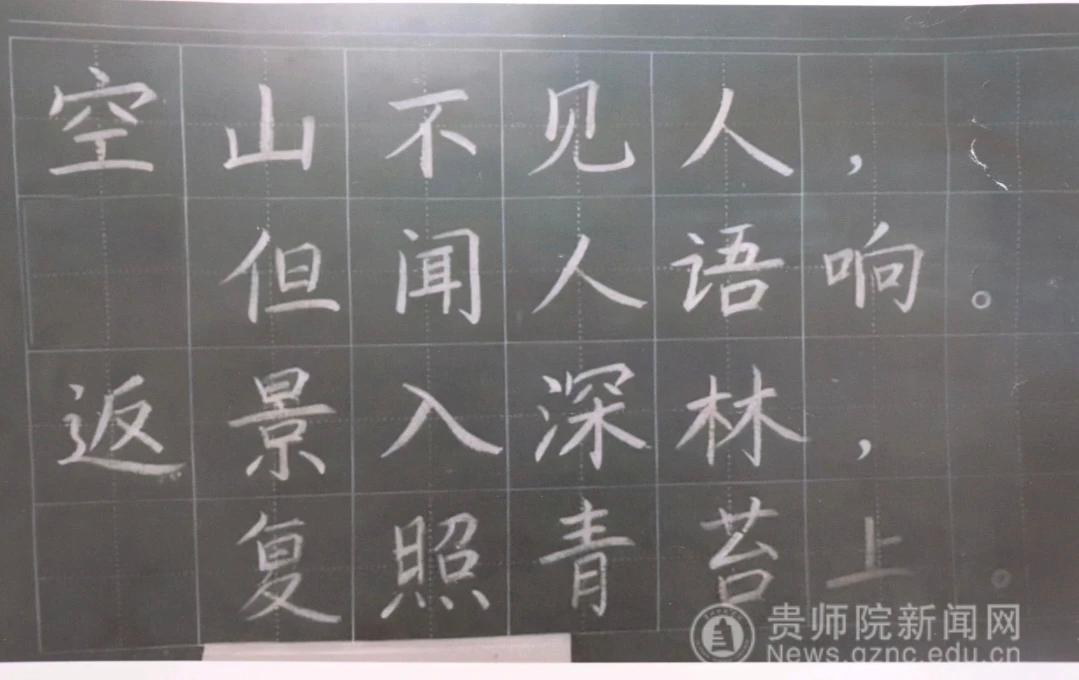 空山不见人，
但闻人语响。
返景入深林，
复照青苔上。
贵师院新闻网
News.gznc.edu.cn